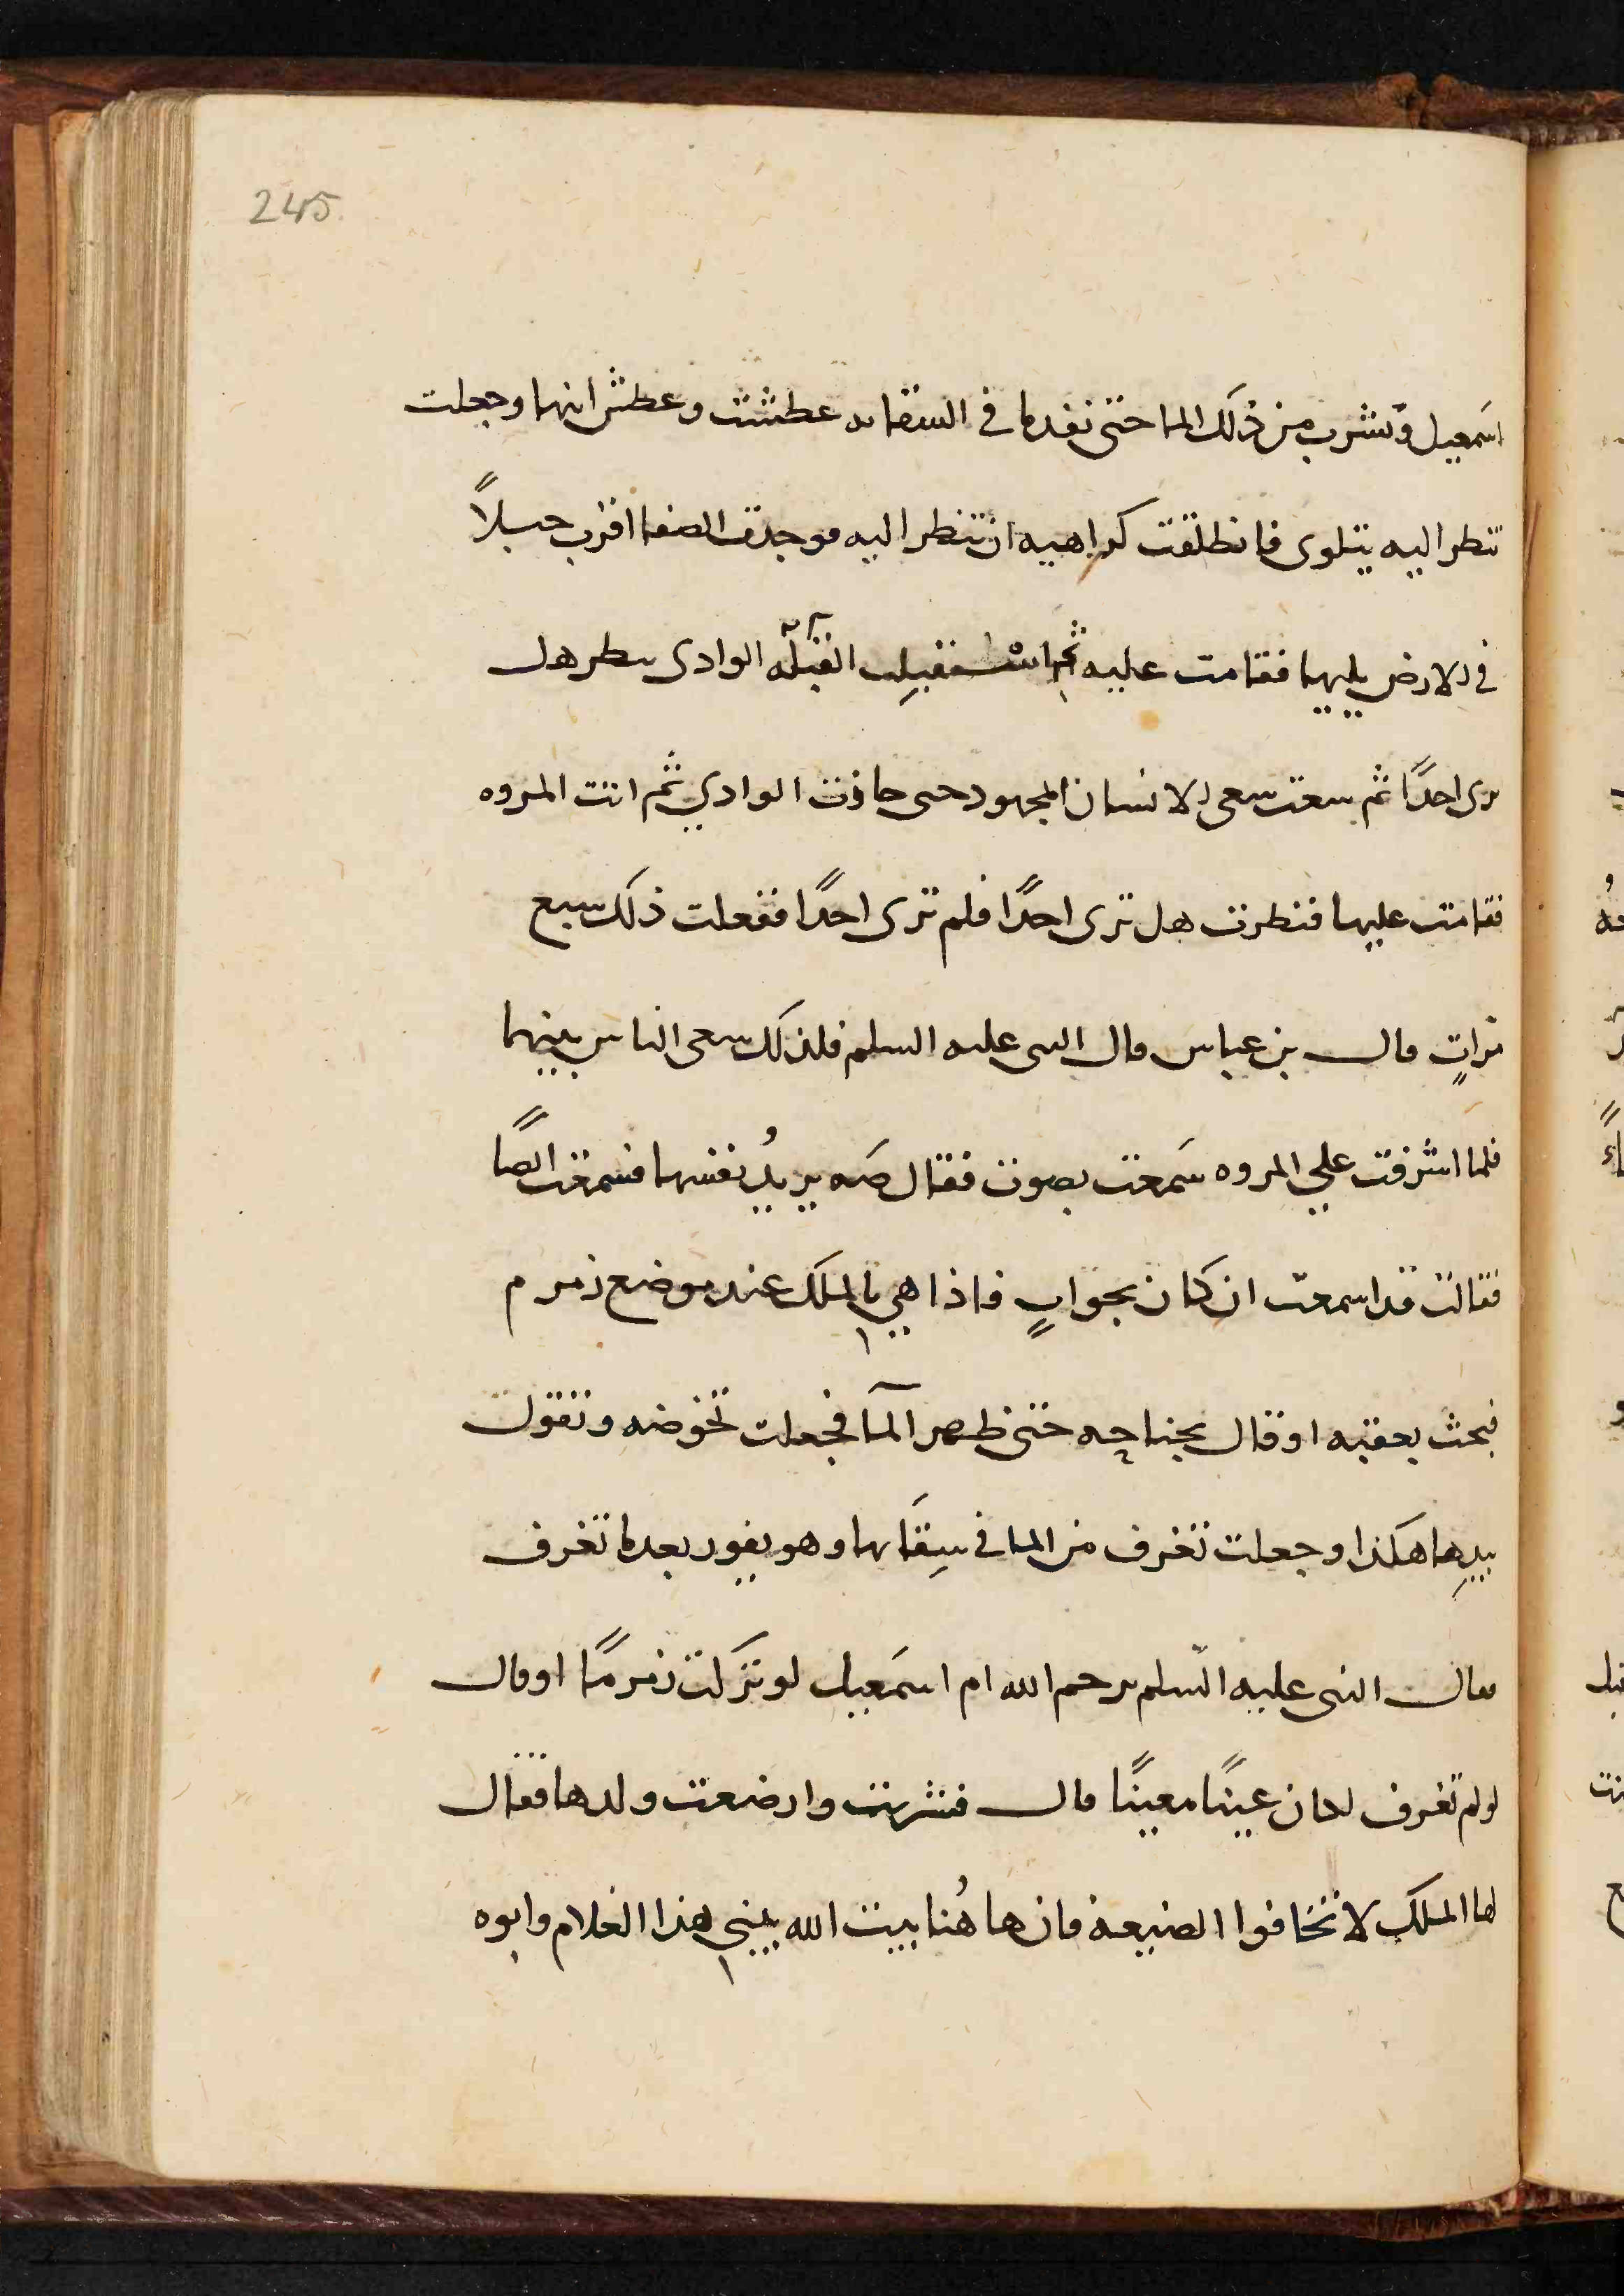 245
اسَمعيل وتشرب من ذلك الما حتى نفد ما في السقا عطشت وعطش ابنها وجعلت
تنظر اليه يتلوى فانطلقت كراهيه ان تنظر اليه فوجدت الصفا اقرب جبلاً
في الارض يليها فقامت عليه ثم استقبلت الوادى تنظر هل
ترى احدًا ثم سعت سعى الانسان المجهود حتى جاوزت الوادي ثم اتت المروه
فقامت عليها فنظرت هل ترى احدًا فلم ترى احدًا ففعلت ذلك سبع
مراتٍ قال بن عباس قال النبى عليه السلم فلذلك سعى الناس بينهما
فلما اشرفت علي المروه سَمعت بصوت فقال صَه يريدُ نفسها فسمعت ايضًا
فقالت قد اسمعت ان كان بجوابٍ فاذا هي بالملك عند موضع زمزم
فبحث بعقبه او قال بجناحه حتى ظهر المآ فجعلت تخوضه وتقول
بيدِها هكذا وجعلت تغرف من الما في سِقَايها وهو يفور بعد ما تغرف
فقال النبى عليه السّلم يرحم الله ام اسمَعيل لو تركت زمزمًا او قال
لو لم تغرف لكان عينًا معينًا قال فشربت وارضعت ولدها فقال
لها الملك لا تخافوا الضيعة فان هاهُنا بيت الله يبني هذا الغلام وابوه